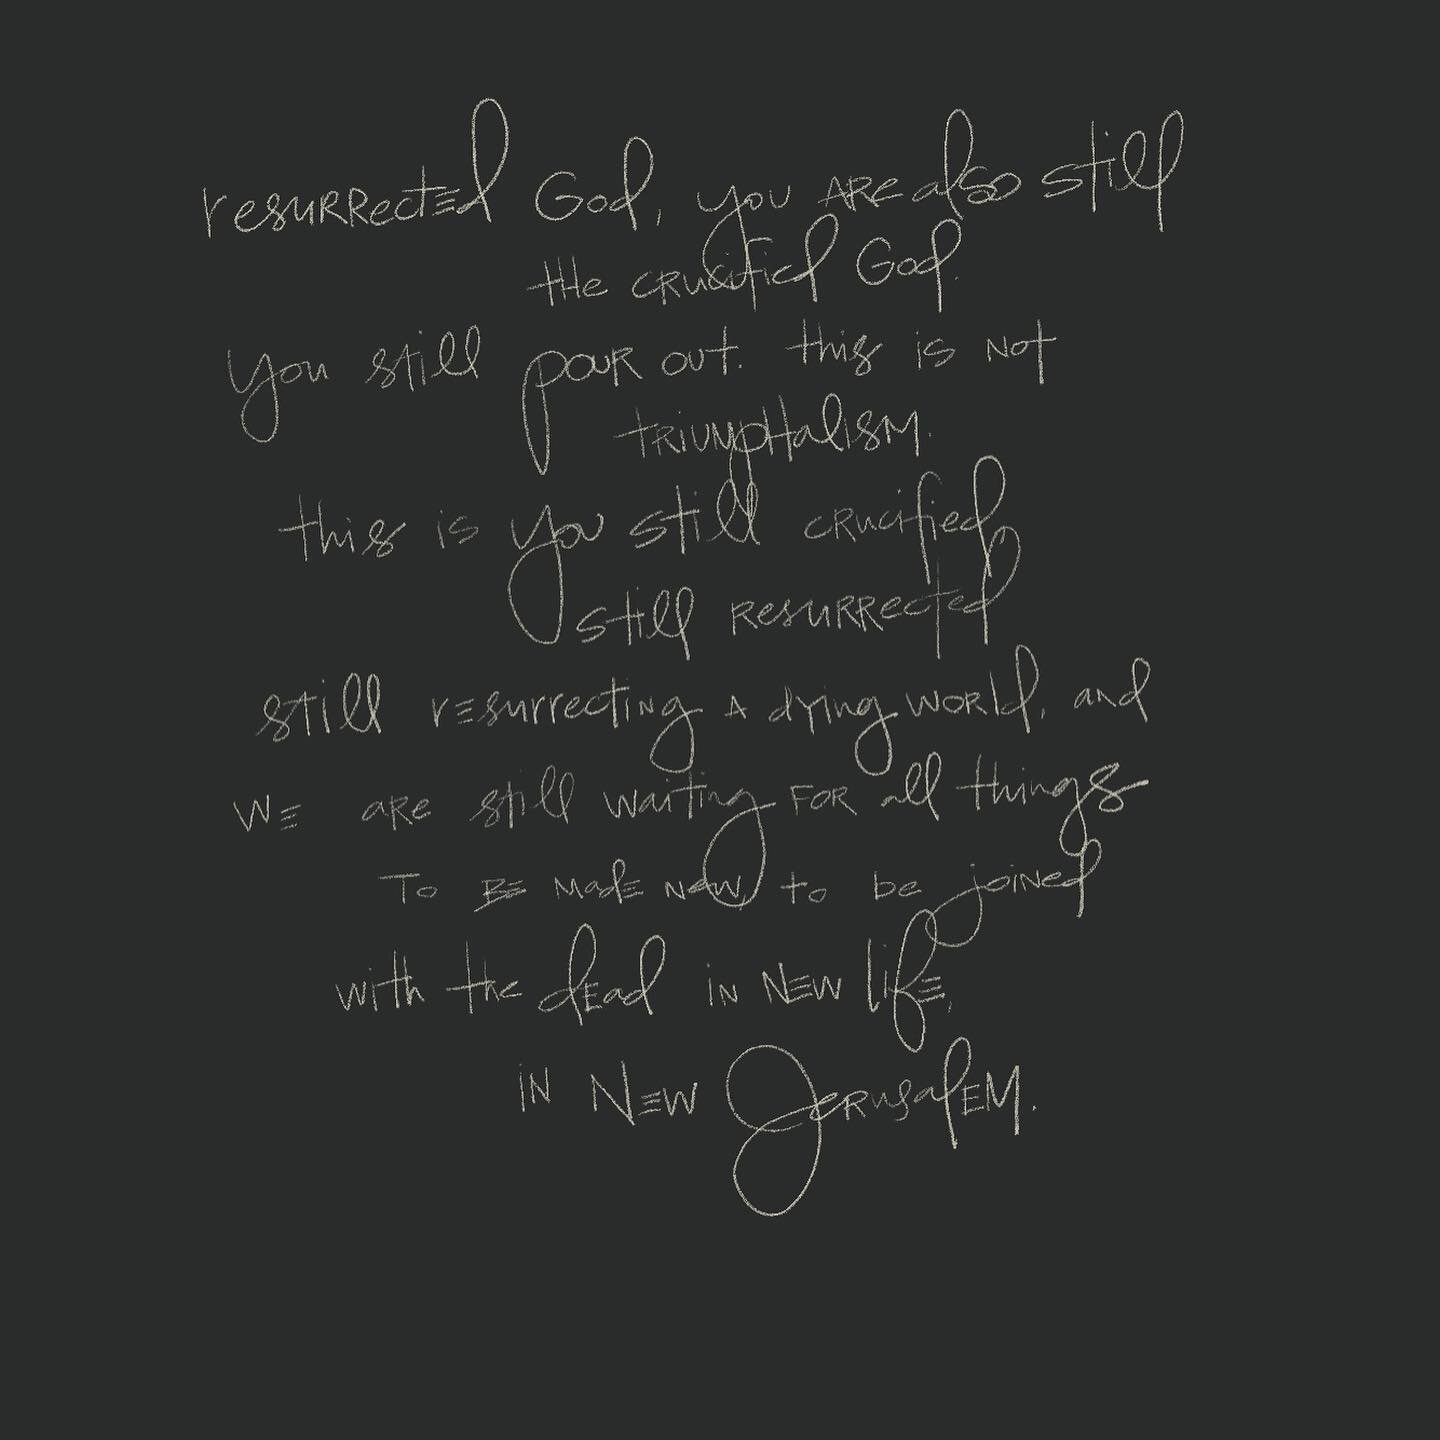 resurrected God, you are also still
the crucified God.
you still pour out. this is not
triumphalism.
this is you still crucified,
still resurrected
still resurrecting a dying world, and
we are still waiting for all things
to be made new, to be joined
with the dead in new life,
in New Jerusalem.